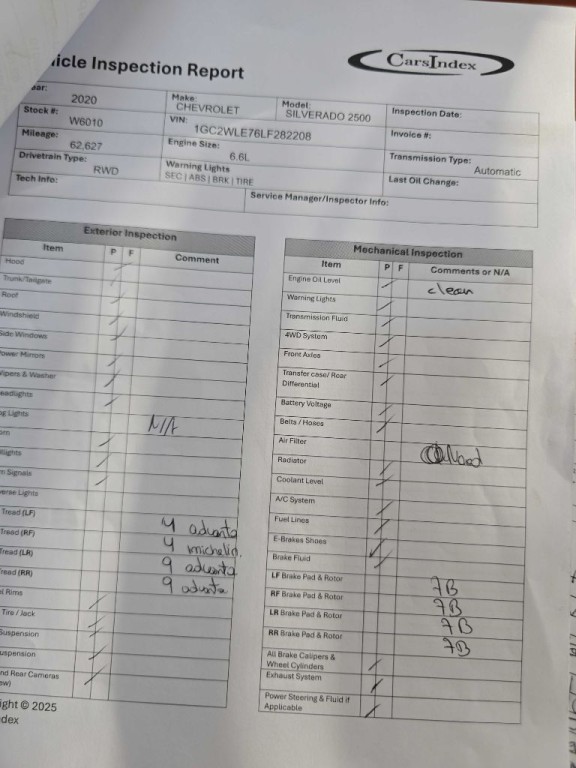 CarsIndex
icle Inspection Report
ear:
2020
Make:
CHEVROLET
Model:
SILVERADO 2500
Inspection Date:
Stock #:
W6010
VIN:
1GC2WLE76LF282208
Invoice #:
Mileage:
62,627
Engine Size:
6.6L
Transmission Type:
Automatic
Drivetrain Type:
RWD
Warning Lights
SEC | ABS | BRK | TIRE
Last Oil Change:
Tech Info:
Service Manager/Inspector Info:
Exterior Inspection
Item P F Comment
Hood
Trunk/Tailgate
Roof
Windshield
Side Windows
ower Mirrors
Wipers & Washer
eadlights
og Lights N/A
orn
illights
n Signals
erse Lights
Tread (LF) 4 advanta
Tread (RF) 4 michelin.
Tread (LR) 9 advanta
read (RR) 9 advanta
l Rims
Tire / Jack
Suspension
uspension
nd Rear Cameras
ew)
ight © 2025
dex
Mechanical Inspection
Item P F Comments or N/A
Engine Oil Level clean
Warning Lights
Transmission Fluid
4WD System
Front Axles
Transfer case/ Rear
Differential
Battery Voltage
Belts / Hoses
Air Filter
Radiator
Coolant Level
A/C System
Fuel Lines
E-Brakes Shoes
Brake Fluid
LF Brake Pad & Rotor 7B
RF Brake Pad & Rotor 7B
LR Brake Pad & Rotor 7B
RR Brake Pad & Rotor 7B
All Brake Calipers &
Wheel Cylinders
Exhaust System
Power Steering & Fluid if
Applicable